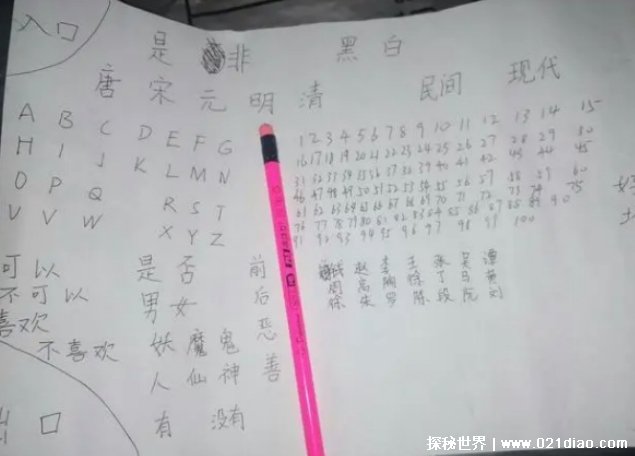 入口
是 非 黑白
唐 宋 元 明 清 民间 现代
A B C D E F G
H I J K L M N
O P Q R S T
U V W X Y Z
1 2 3 4 5 6 7 8 9 10 11 12 13 14 15
16 17 18 19 20 21 22 23 24 25 26 27 28 29 30
31 32 33 34 35 36 37 38 39 40 41 42 43 44 45
46 47 48 49 50 51 52 53 54 55 56 57 58 59 60
61 62 63 64 65 66 67 68 69 70 71 72 73 74 75
76 77 78 79 80 81 82 83 84 85 86 87 88 89 90
91 92 93 94 95 96 97 98 99 100
可以 是否 前
不可以 男女 后
喜欢 恶
不喜欢 妖魔鬼 善
人仙神
口 有 没有
钱 赵 李 王 张 吴 潭
周 高 陶 徐 丁 马 黄
徐 朱 罗 陈 段 阮 刘
探秘世界 | www.021diao.com